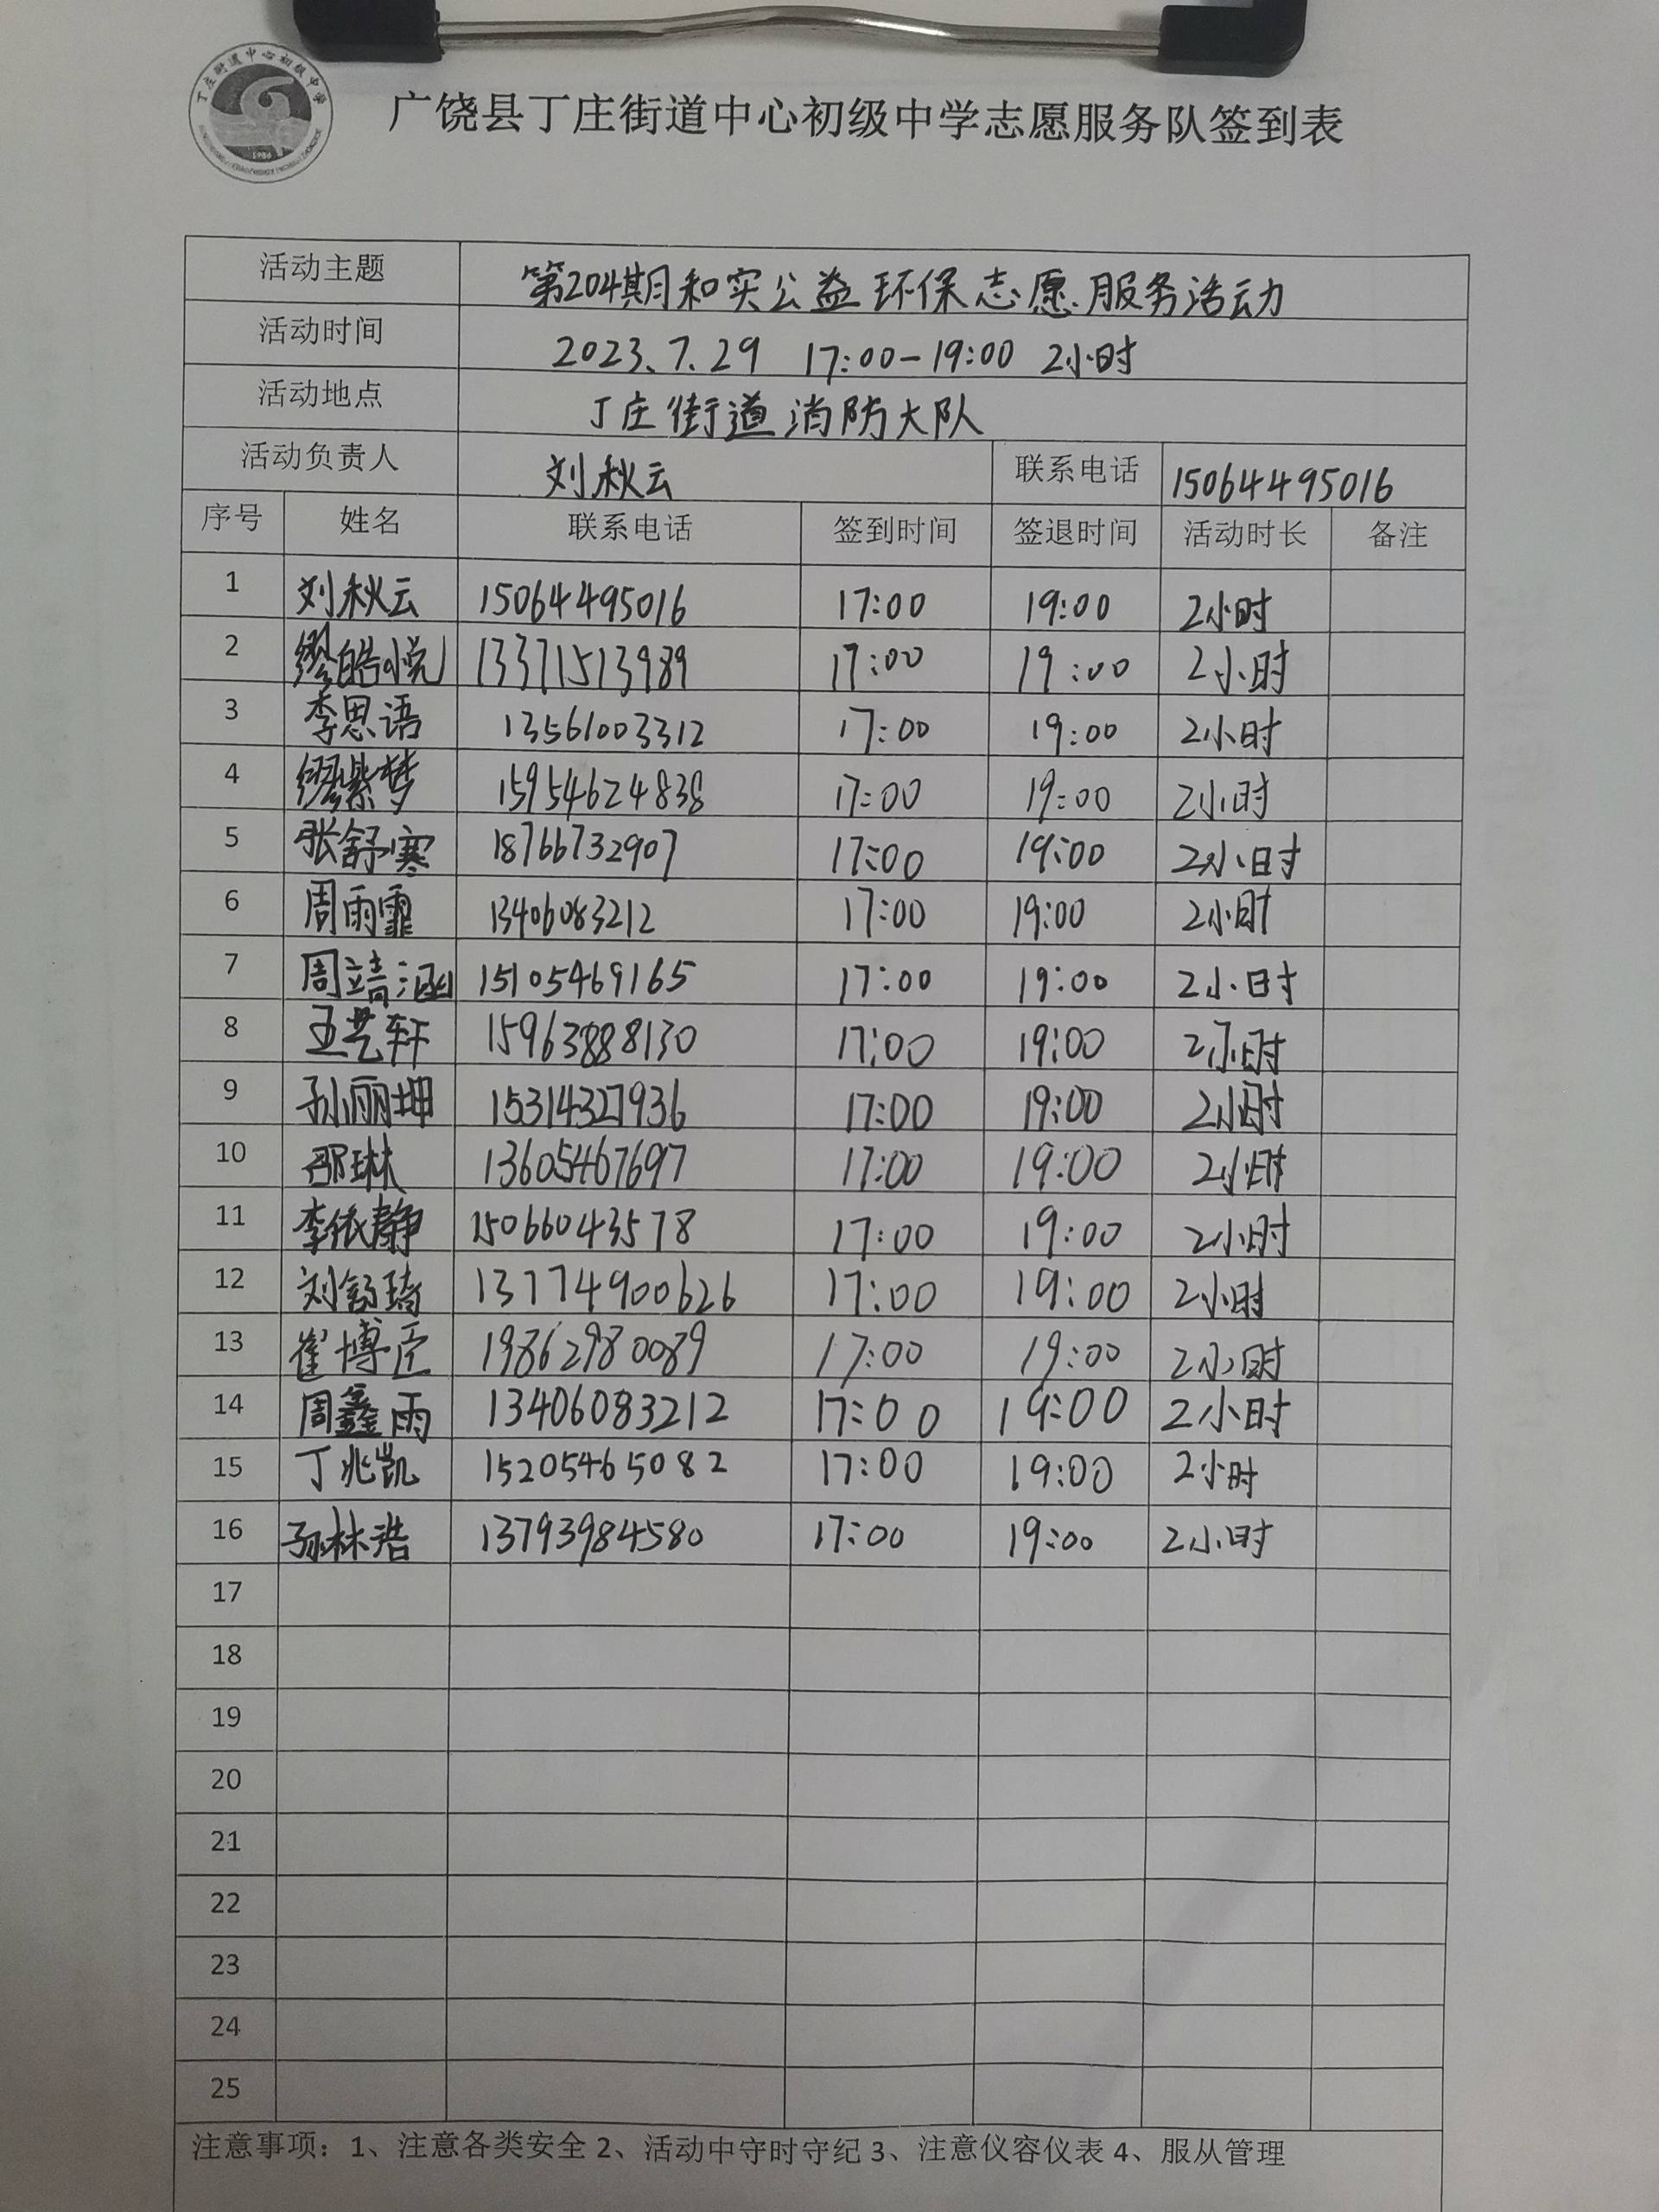 丁庄街道中心初级中学
1986
广饶县丁庄街道中心初级中学志愿服务队签到表
活动主题 第204期和实公益环保志愿服务活动
活动时间 2023.7.29 17:00-19:00 2小时
活动地点 丁庄街道消防大队
活动负责人 刘秋云 联系电话 15064495016
序号 姓名 联系电话 签到时间 签退时间 活动时长 备注
1 刘秋云 15064495016 17:00 19:00 2小时
2 缪皓悦 13371513989 17:00 19:00 2小时
3 李思语 13561003312 17:00 19:00 2小时
4 缪紫梦 15954624838 17:00 19:00 2小时
5 张舒寒 18766732907 17:00 19:00 2小时
6 周雨霏 13406083212 17:00 19:00 2小时
7 周靖涵 15105469165 17:00 19:00 2小时
8 王艺轩 15963888130 17:00 19:00 2小时
9 孙丽坤 15314327936 17:00 19:00 2小时
10 邵琳 13605467697 17:00 19:00 2小时
11 李依静 15066043578 17:00 19:00 2小时
12 刘舒琦 137774900626 17:00 19:00 2小时
13 崔博匠 19862980089 17:00 19:00 2小时
14 周鑫雨 13406083212 17:00 19:00 2小时
15 丁兆凯 15205465082 17:00 19:00 2小时
16 孙林浩 13793984580 17:00 19:00 2小时
17
18
19
20
21
22
23
24
25
注意事项：1、注意各类安全 2、活动中守时守纪 3、注意仪容仪表 4、服从管理